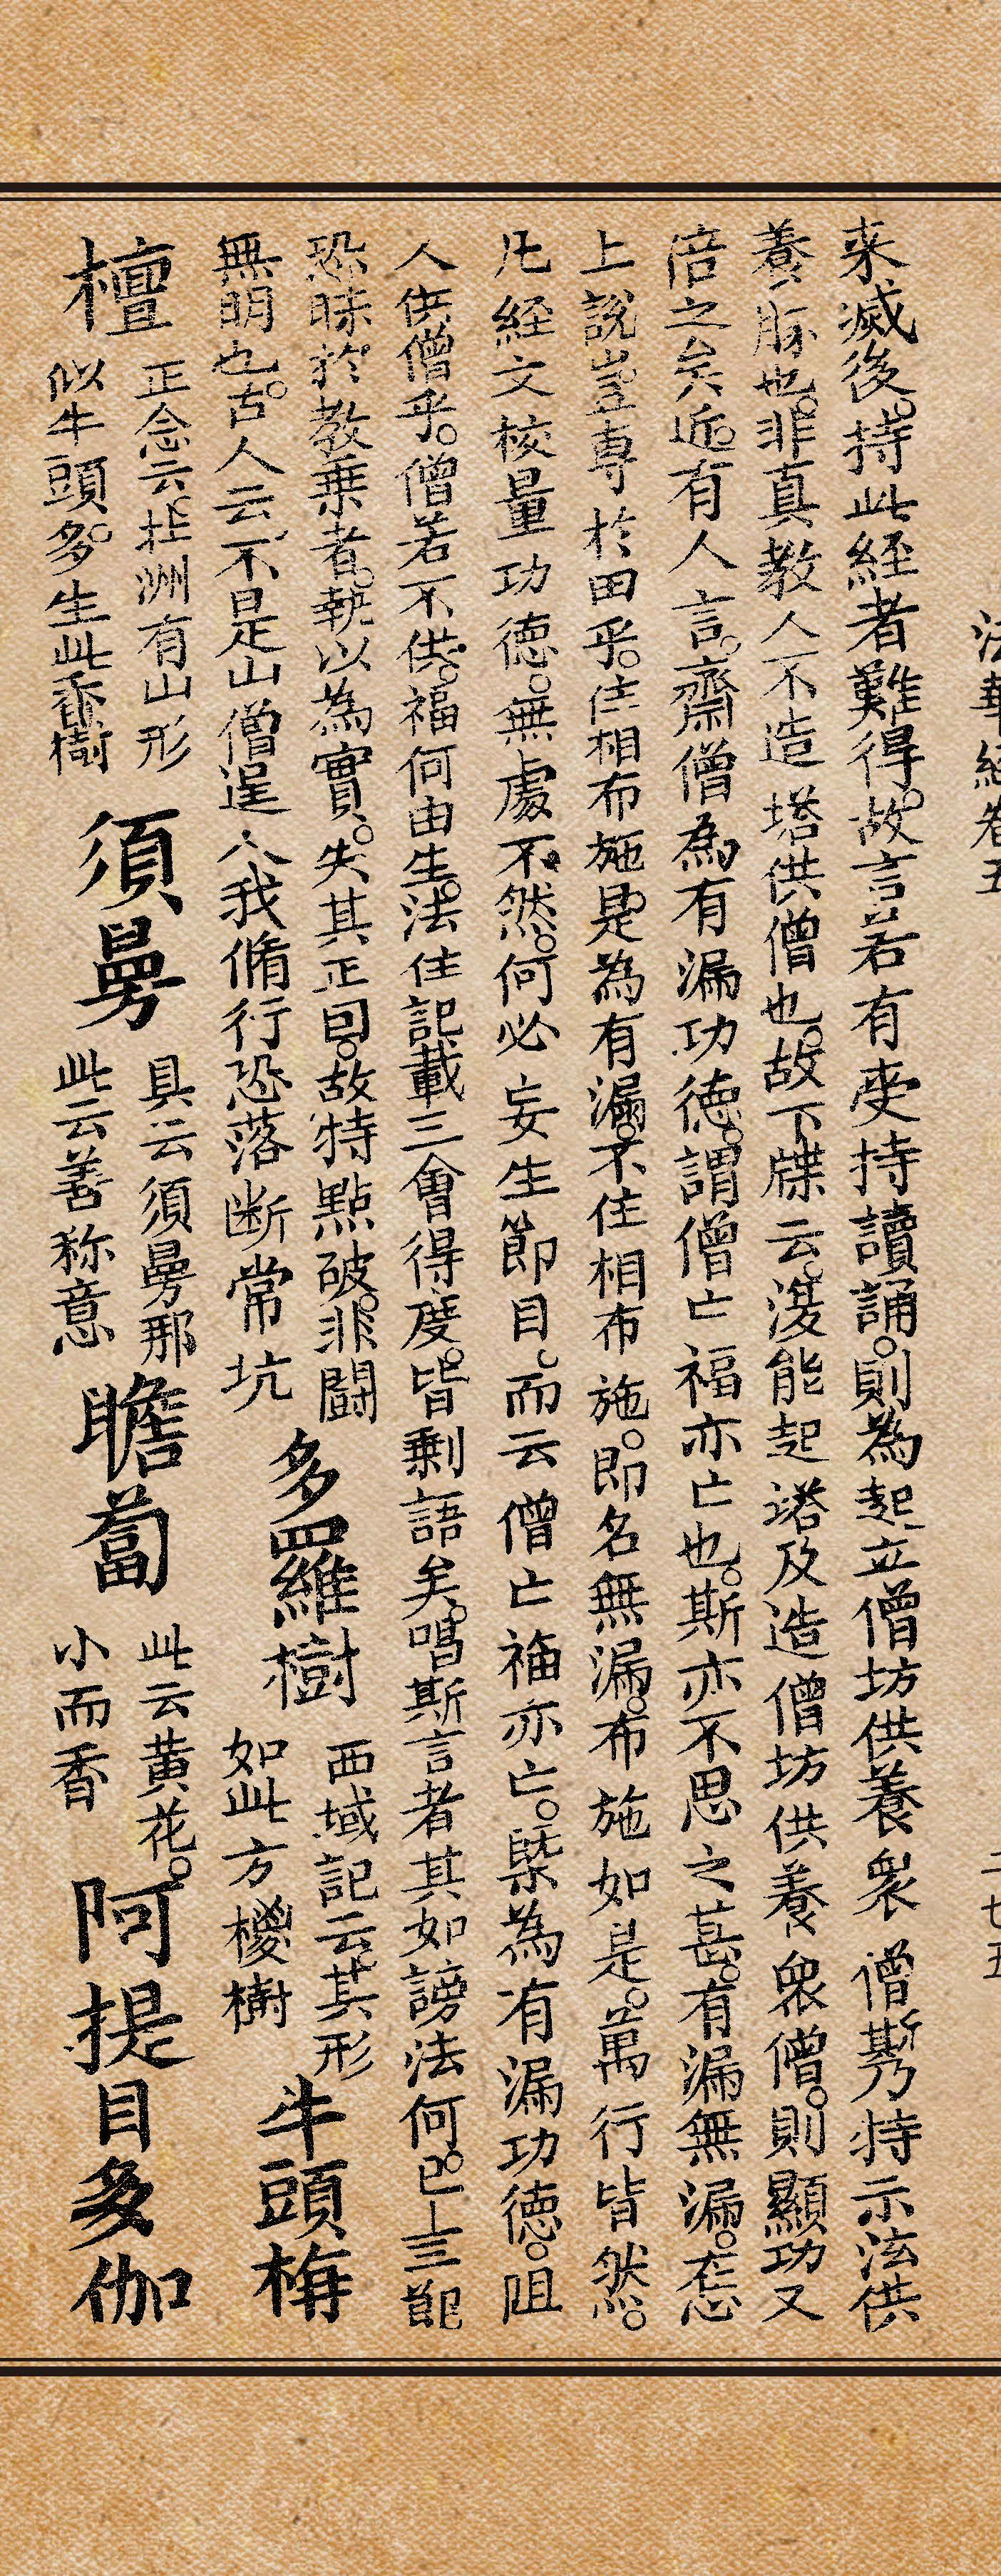 法華經卷五
二七五
来滅後。持此経者難得。故言若有受持讀誦。則為起立僧坊供養衆僧斯乃特示法供
養。也。非真教人不造塔供僧也。故下牒云。復能起塔及造僧坊供養衆僧。則顯功又
倍之矣近。有人言。齋僧為有漏功德。謂僧亡福亦亡也。斯亦不思之甚。有漏無漏。在
上說豈專於田乎。住相布施是為有漏。不住相布施。即名無漏。布施如是。萬行皆然。
凡経文校量功德。無處不然。何必妄生節目。而云僧亡福亦亡。槩為有漏功德。阻
人供僧乎。僧若不供。福何由生。法住記載三會得度。皆剩語矣。唱斯言者其如謗法何。
恐昧於教乗者。執以為實。失其正因。故特點破。非闢
無明也。古人云不是山僧逞人我脩行恐落断常坑
多羅樹
西域記云其形
如此方椶樹
牛頭栴
檀
正念云北洲有山形
似牛頭。多生此香樹
須曼
具云須曼那
此云善称意
瞻蔔
此云黄花。
小而香
阿提目多伽